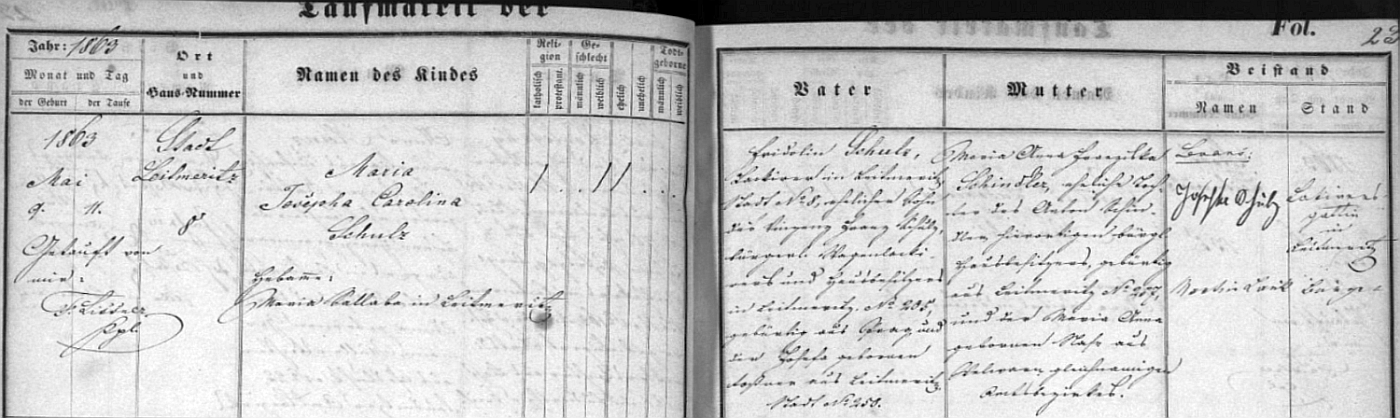 Taufmatrik der
Fol. 23
Jahr: 1863
Monat und Tag
der Geburt
der Taufe
Ort
und
Haus-Nummer
Namen des Kindes
Religion
katholisch
protestant.
Geschlecht
männlich
weiblich
ehelich
unehelich
Todtgeborne
männlich
weiblich
1863
Mai
9. 11.
Getauft von
mir:
Stadt
Leitmeritz
8
Maria
Josepha Carolina
Schulz
Hebamme:
Maria Sallaba in Leitmeritz
Vater
Mutter
Beistand
Namen
Stand
Fridolin Schulz,
Lakirer in Leitmeritz
Stadt No 8, ehelicher Sohn
des Franz Schulz,
bürgerl. Wagenlacki-
rers und Hausbesitzers
in Leitmeritz No 205,
gebürtig aus Prag und
der Josefa gebornen
aus Leitmeritz
Stadt No 250.
Maria Anna
Schindler, eheliche Toch-
ter des Anton Schind-
ler hierortigen bürgl.
Hausbesitzers, gebürtig
aus Leitmeritz No
und der Maria Anna
gebornen aus
gleichnamigen
Amtsbezirkes.
Josefa Schulz
Lakirers
gattin
in
Leitmeritz